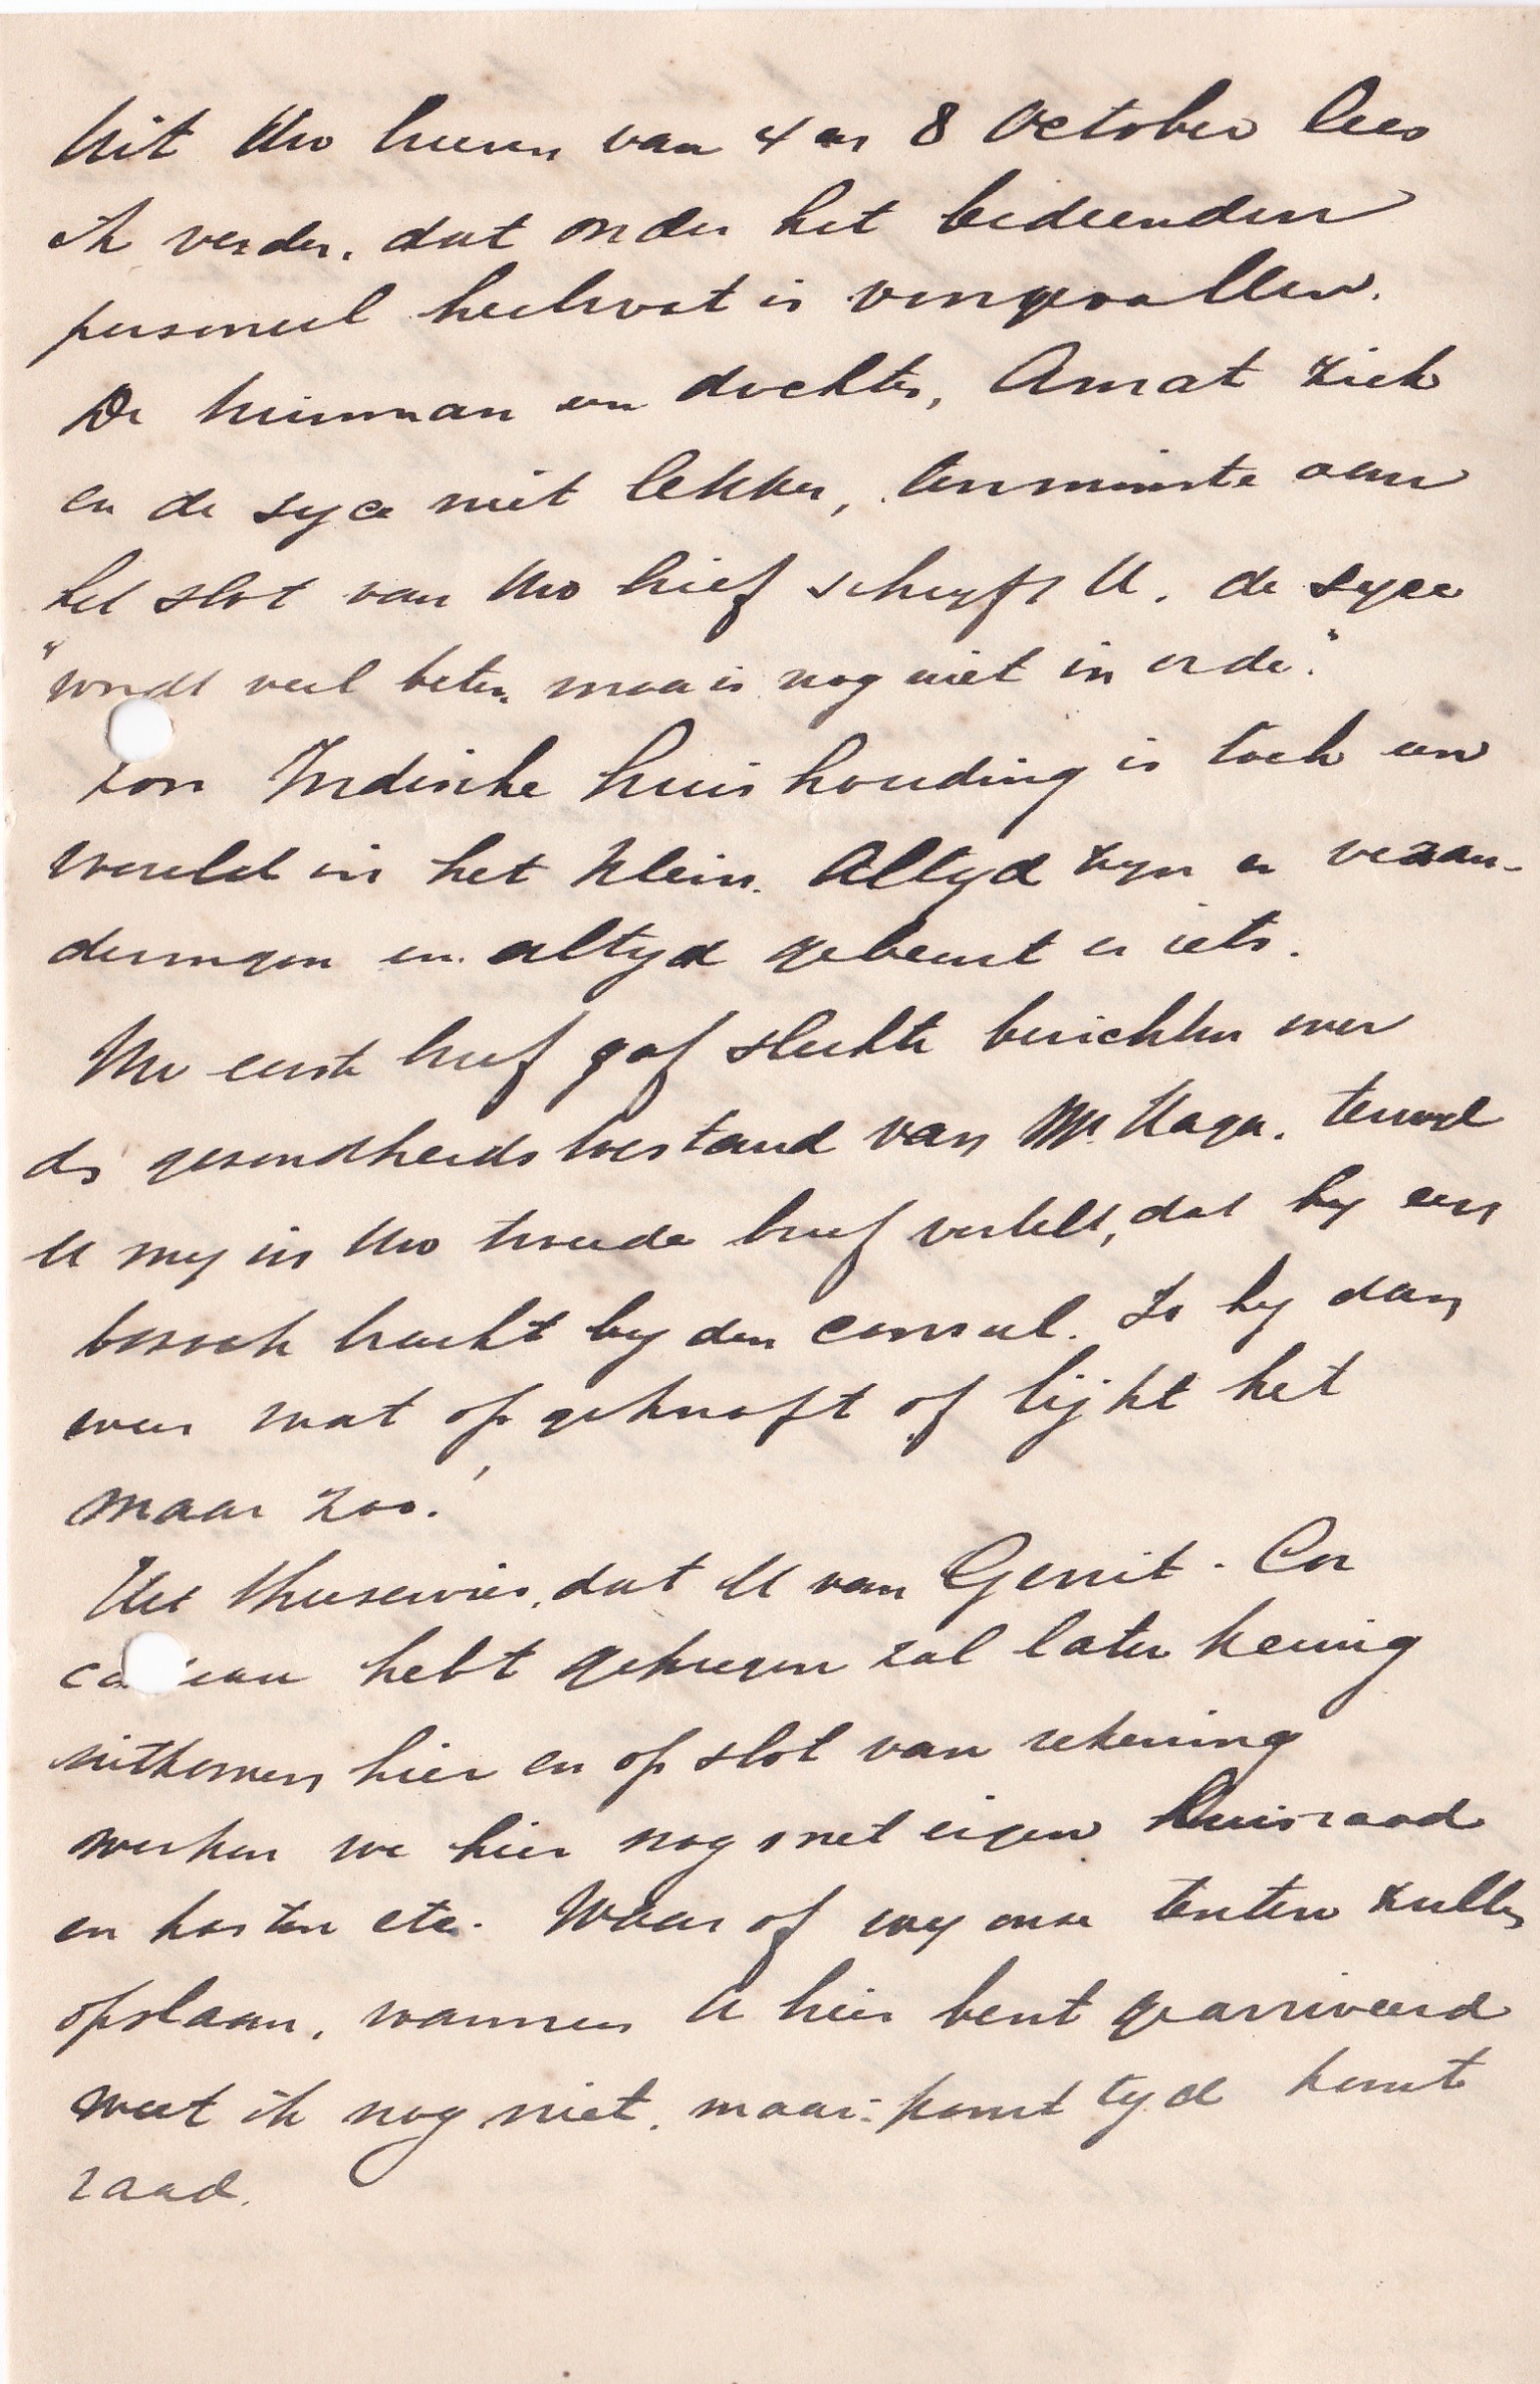 Uit Uw brieven van 4 en 8 October lees
ik verder, dat onder het bedienden
personeel heelwat is voorgevallen.
De tuinman een dochter, Amat ziek
en de syce niet lekker, tenminste aan
het slot van Uw brief schryft U, de syce
"wordt veel beter, maar is nog niet in orde."
Zoo'n Indische huishouding is toch een
wereld in het klein. Altyd zyn er veran-
deringen en altyd gebeurt er iets.
Uw eerste brief gaf slechte berichten over
de gezondheidstoestand van Mr. Haga, terwyl
U my in Uw tweede brief vertelt, dat hy een
bezoek bracht by den consul. Is hy dan
weer wat opgeknapt of lijkt het
maar zoo!
Het theeservies, dat U van Gerrit - Cor
cadeau hebt gekregen zal later keurig
uitkomen hier en op slot van rekening
werken we hier nog met eigen huisraad
en kosten etc. Waar of wy onze tenten zullen
opslaan, wanneer U hier bent gearriveerd
weet ik nog niet, maar: komt tyd komt
raad.